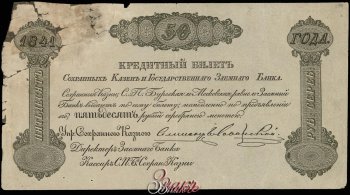 1841
50
ГОДА.
КРЕДИТНЫЙ БИЛЕТЪ
Сохранныхъ Казенъ и Государственнаго Заемнаго Банка.
Сохранныя Казны, С.П.Бургская и Московская, равно и Заемный
Банкъ по сему билету, по предъявленію
ПЯТЬДЕСЯТЪ рублей серебряною монетою.
ПЯТЬДЕСЯТЪ
РУБ. СЕРЕБР.
Упр. Сохранною Казною
Директоръ Заемнаго Банка
Кассиръ С.П.Б. Сохран. Казны